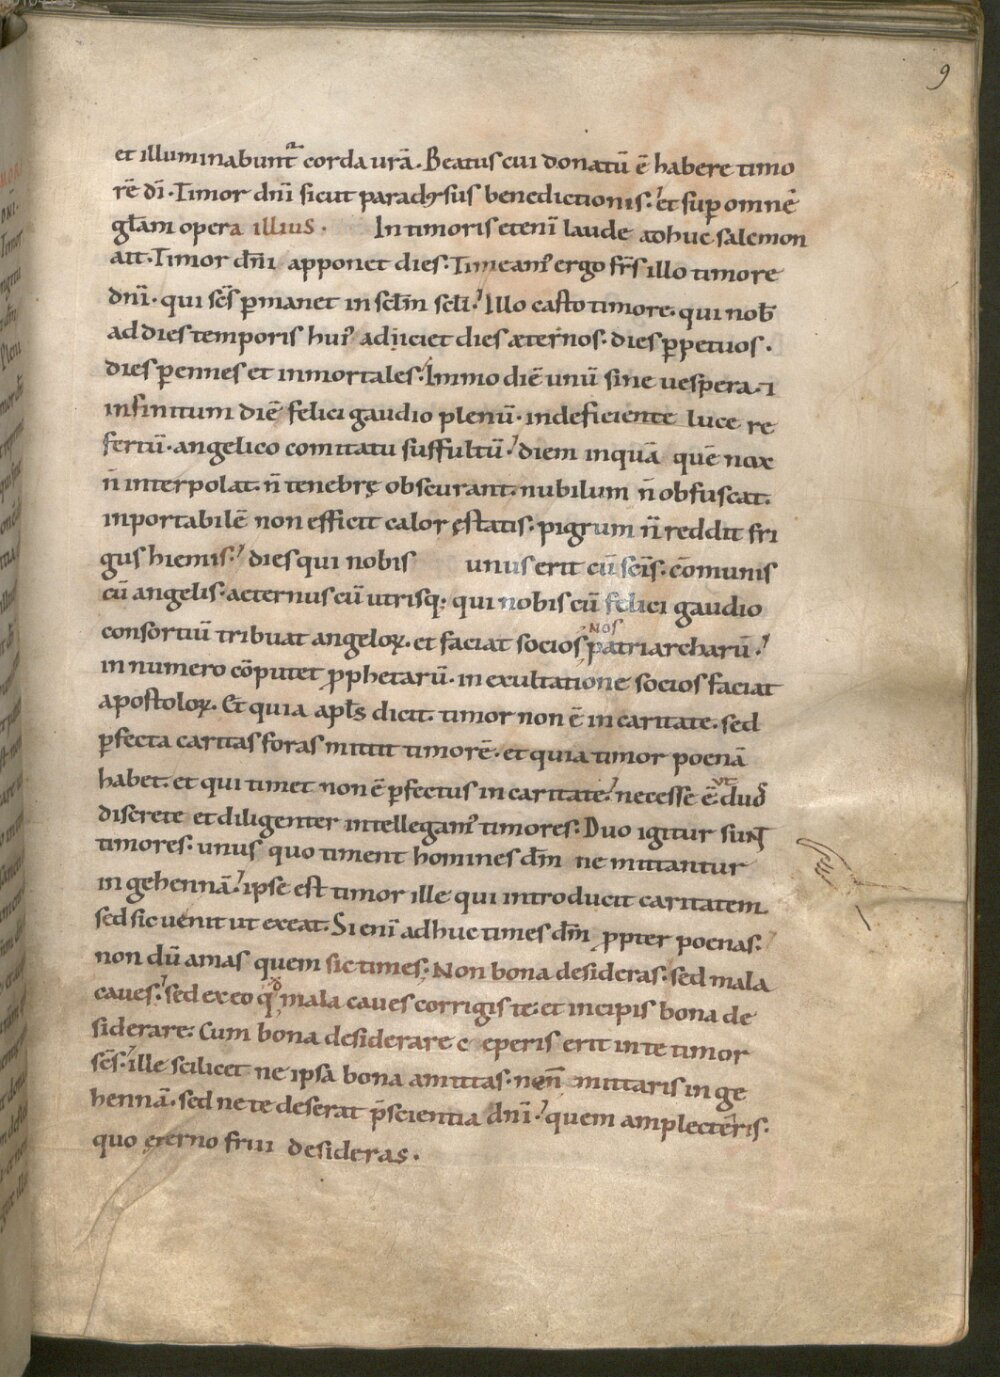 9
et illuminabunt᷑ corda urā. Beatus cui donatū ē habere timo
rē dī. Timor dnī sicut paradysus benedictionis: et sup omnē
glām opera illius. In timoris etenī laude adhuc salemon
ait. Timor dnī apponet dies. Timeamꝰ ergo frs̄ illo timore
dnī. qui scs̄ ꝑmanet in sclm̄ sclī. Illo casto timore. qui nob̄
ad dies temporis huiꝰ adiiciet dies æternos. dies ꝑpetuos.
dies ꝑennes et inmortales. Immo diē unū sine uespera. i
infinitum diē felici gaudio plenū. indeficiente luce re
fertū. angelico comitatu suffultū. diem inquā quē nox
n̄ interpolat. n̄ tenebrę obscurant. nubilum n̄ obfuscat.
inportabilē non efficit calor ęstatis. pigrum n̄ reddit fri
gus hiemis. dies qui nobis unus erit cū scīs. cōmunis
cū angelis. aeternus cū utrisq; qui nobis cū felici gaudio
consortiū tribuat angeloꝝ. et faciat socios nos patriarcharū.
in numero cōputet ꝓphetarū. in exultatione socios faciat
apostoloꝝ. Et quia apls̄ dicit. timor non ē in caritate. sed
ꝑfecta caritas foras mittit timorē. et quia timor poenā
habet. et qui timet non ē ꝑfectus in caritate. necesse ē ut duos
discrete et diligenter intellegamꝰ timores. Duo igitur sunt
timores. unus quo timent homines dm̄ ne mittantur
in gehennā. ipse est timor ille qui introducit caritatem
sed sic uenit ut exeat. Si enī adhuc times dm̄ ꝓpter poenas.
non dū amas quem sic times. Non bona desideras. sed mala
caues. sed ex eo qd mala caues corrigis te. et incipis bona de
siderare. Cum bona desiderare c eperis erit in te timor
scs̄. ille scilicet ne ipsa bona amittas. non mittaris in ge
hennā. sed ne te deserat p̄scientia dnī. quem amplecteris.
quo ęterno frui desideras.